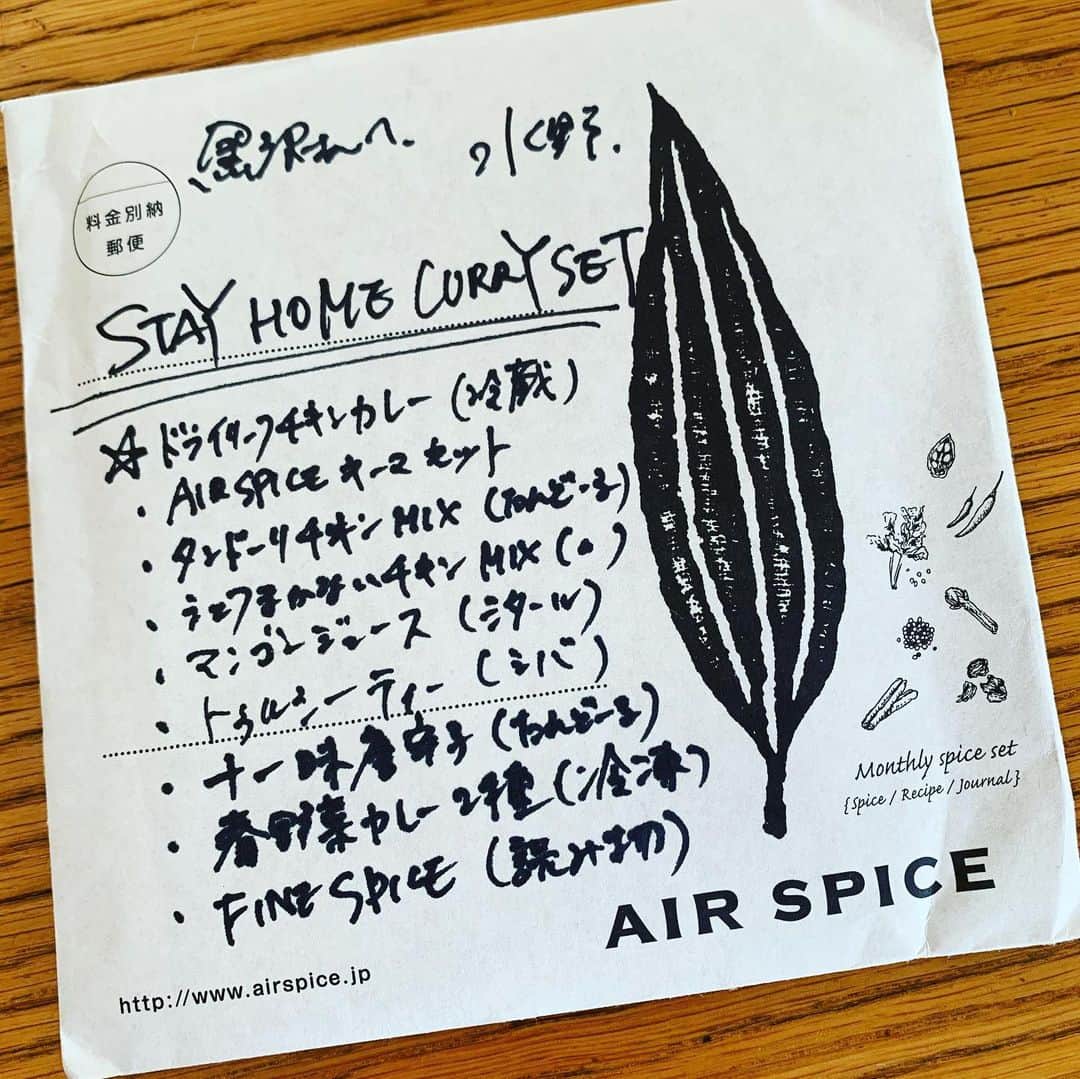 黒沢さんへ. 水野.
料金別納
郵便
STAY HOME CURRY SET
☆ ドライターフチキンカレー (冷蔵)
・AIR SPICE キーマセット
・タンドーリチキンMIX (たんどーる)
・シェフまかないチキンMIX (〃)
・マンゴージュース (シタール)
・トゥルシーティー (シバ)
・十一味唐辛子 (たんどーる)
・春野菜カレー2種 (冷凍)
・FINE SPICE (読み切り)
Monthly spice set
{Spice / Recipe / Journal}
AIR SPICE
http://www.airspice.jp